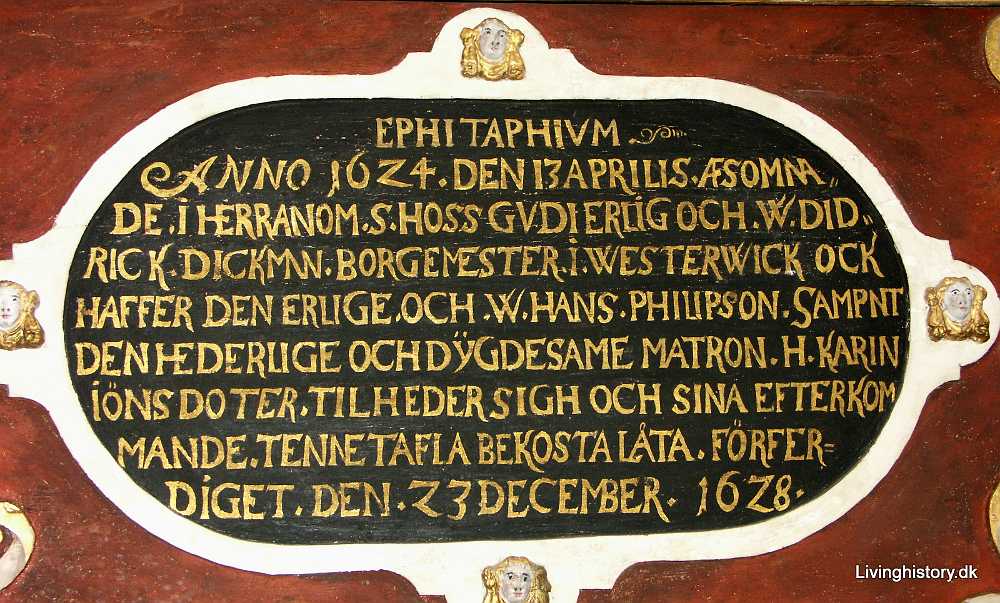 EPHITAPHIVM.
ANNO. 1624. DEN 13 APRILIS. ÆSOMNA„
DE. I HERRANOM. S. HOSS GVDI ERLIG OCH. W. DID„
RICK. DICKMAN. BORGEMESTER. I. WESTERWICK OCK
HAFFER DEN ERLIGE. OCH. W. HANS. PHILIPSON. SAMPNT
DEN HEDERLIGE OCH DŸGDESAME MATRON. H. KARIN
IÖNSDOTER. TILHEDER SIGH OCH SINA EFTERKOM
MANDE. TENNE TAFLA BEKOSTA LÅTA. FÖRFER=
DIGET. DEN. 23 DECEMBER. 1628.
Livinghistory.dk